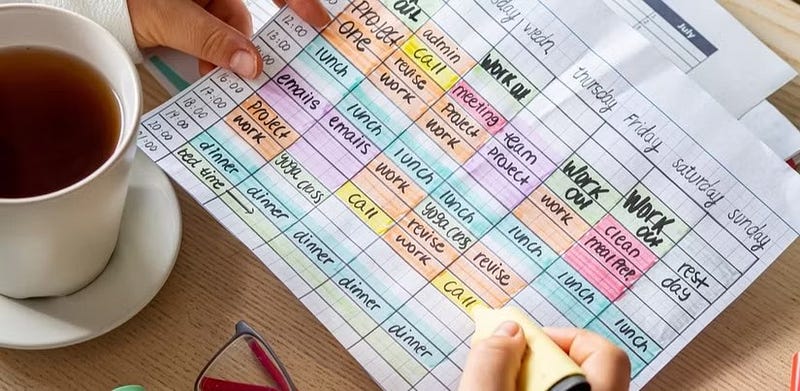 July
wedn.
thursday
Friday
saturday
sunday
12:00
13:00
16:00
17:00
18:00
19:00
20:00
21:00
Project
One
lunch
emails
Project
work
dinner
bed time
out
admin
call
revise
work
lunch
emails
yoga class
dinner
work out
meeting
Project
work
lunch
work
call
dinner
team
project
lunch
yoga class
revise
work
dinner
work
out
work
lunch
revise
call
dinner
work
out
clean
meal Prep.
lunch
rest
day
lunch